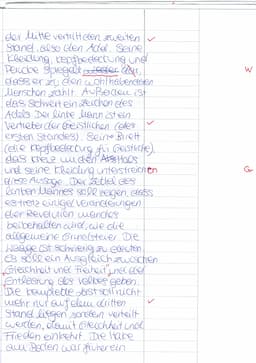 der Mitte vertritt den zweiten
Stand, also den Adel. Seine
Kleidung, Kopfbedeckung und
Perücke spiegelt
dass er zu den wohlhabenderen
Menschen zählt. Außerdem ist
das Schwert ein Zeichen des
Adels. Der linke Mann ist ein
Vertreter der Geistlichen (des
ersten Standes). Seine Birett
(die Kopfbedeckung für Geistliche),
das Kreuz um den Hals
und seine Kleidung unterstreichen
diese Aussage. Der Zettel des
linken Mannes soll zeigen, dass
es trotz einiger Veränderungen
der Revolution manches
beibehalten wird, wie die
allgemeine Grundsteuer. Die
Waage ist schwierig zu deuten.
Es soll ein Ausgleich zwischen
Gleichheit und Freiheit und der
Entlastung des Volkes geben.
Die Hauptlast soll nicht
mehr nur auf dem dritten
Stand liegen sondern verteilt
werden, damit Gleichheit und
Frieden einkehrt. Die
am Boden war früher ein
W
G